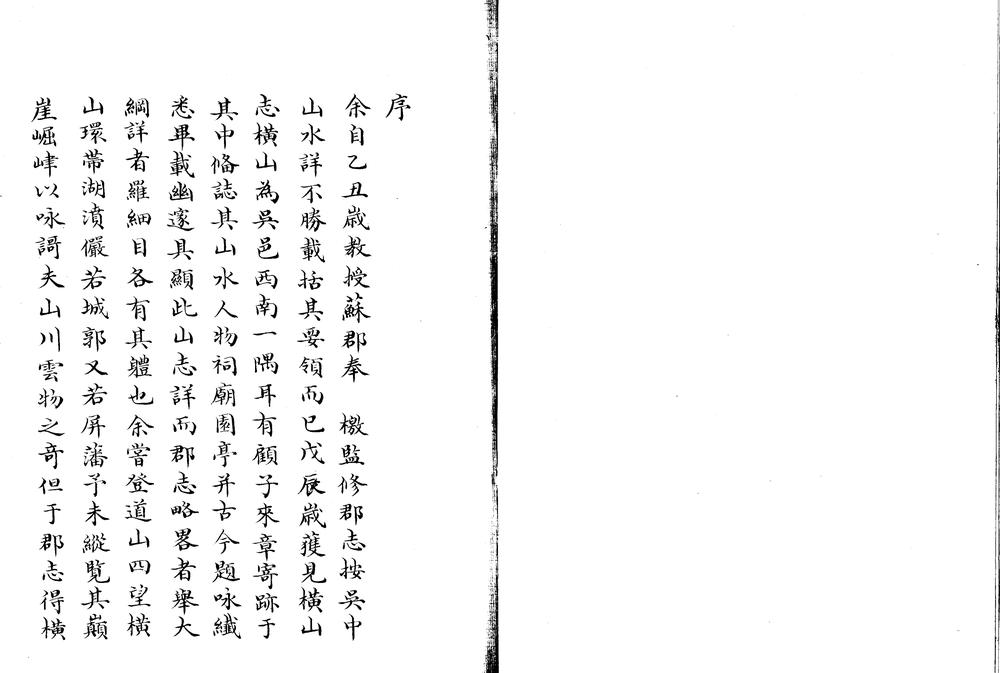 序
余自乙丑嵗教授蘇郡奉　檄監修郡志按吳中
山水詳不勝載括其要領而已戊辰嵗獲見橫山
志橫山為吳邑西南一隅耳有顧子來章寄跡于
其中俻誌其山水人物祠廟園亭并古今題咏纖
悉畢載幽邃具顯此山志詳而郡志略畧者舉大
綱詳者羅細目各有其軆也余嘗登道山四望橫
山環帶湖濆儼若城郭又若屏藩予未縱覧其巔
崖崛嵂以咏謌夫山川雲物之竒但于郡志得橫